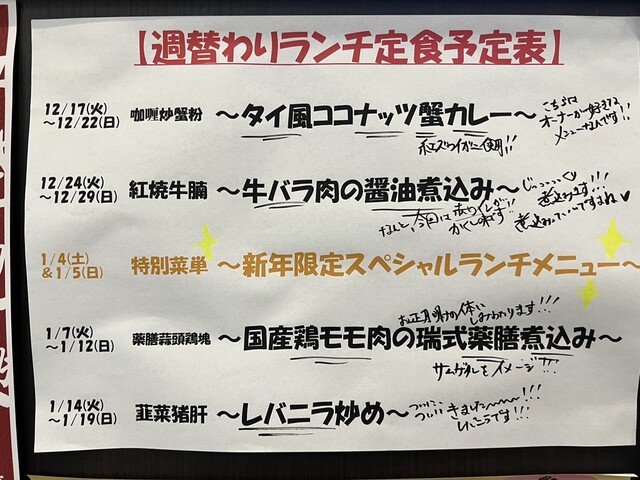 【週替わりランチ定食予定表】
12/17(火)
～12/22(日)
咖喱炒蟹粉
～タイ風ココナッツ蟹カレー～
こちらは
オーナーが好きな
メニューなんです!!
ホンズワイガニ使用!!
12/24(火)
～12/29(日)
紅焼牛腩
～牛バラ肉の醤油煮込み～
じっっっっくり
煮込みます!!!
なんと、今回は赤ワインが
かくし味です!!
1/4(土)
&1/5(日)
特別菜単
～新年限定スペシャルランチメニュー～
お正月明けの体に
しみわたります!!!
1/7(火)
～1/12(日)
薬膳蒜頭鶏塊
～国産鶏モモ肉の瑞式薬膳煮込み～
サムゲタンをイメージ!!!
1/14(火)
～1/19(日)
韮菜猪肝
～レバニラ炒め～
ついに、
ついに きました～～～!!!
レバニラです!!!